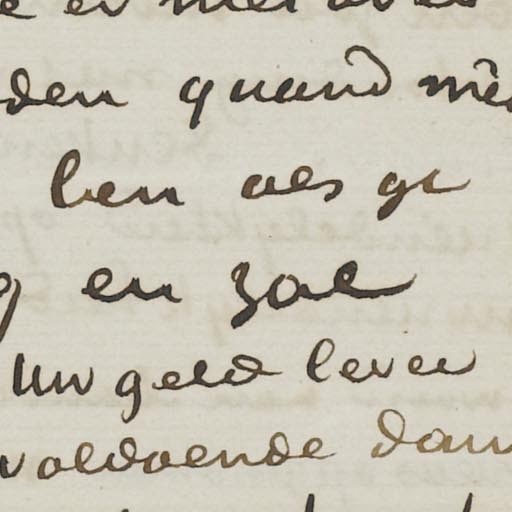 den quand mê
ben als ge
g en zal
Uw geld lever
voldoende dan